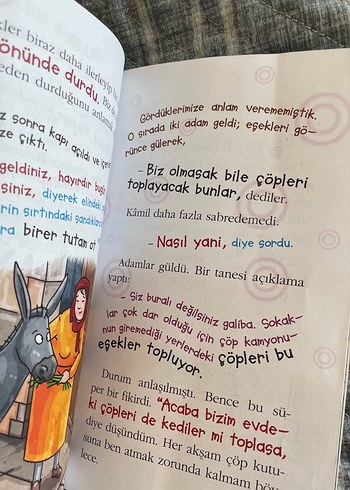 kler biraz daha ilerleyip
önünde durdu. Biz de
eden durduğunu anlamadı
z sonra kapı açıldı ve içeri
ze çıktı.
geldiniz, hayırdır bugün
siniz, diyerek elindeki
rin sırtındaki sandıklara
ra birer tutam ot
Gördüklerimize anlam verememiştik.
O sırada iki adam geldi; eşekleri gö-
rünce gülerek,
– Biz olmasak bile çöpleri
toplayacak bunlar, dediler.
Kâmil daha fazla sabredemedi.
– Nasıl yani, diye sordu.
Adamlar güldü. Bir tanesi açıklama
yaptı:
– Siz buralı değilsiniz galiba. Sokak-
lar çok dar olduğu için çöp kamyonu-
nun giremediği yerlerdeki çöpleri bu
eşekler topluyor.
Durum anlaşılmıştı. Bence bu sü-
per bir fikirdi. “Acaba bizim evde-
ki çöpleri de kediler mi toplasa,
diye düşündüm. Her akşam çöp kutu-
suna ben atmak zorunda kalmam böy-
lece.